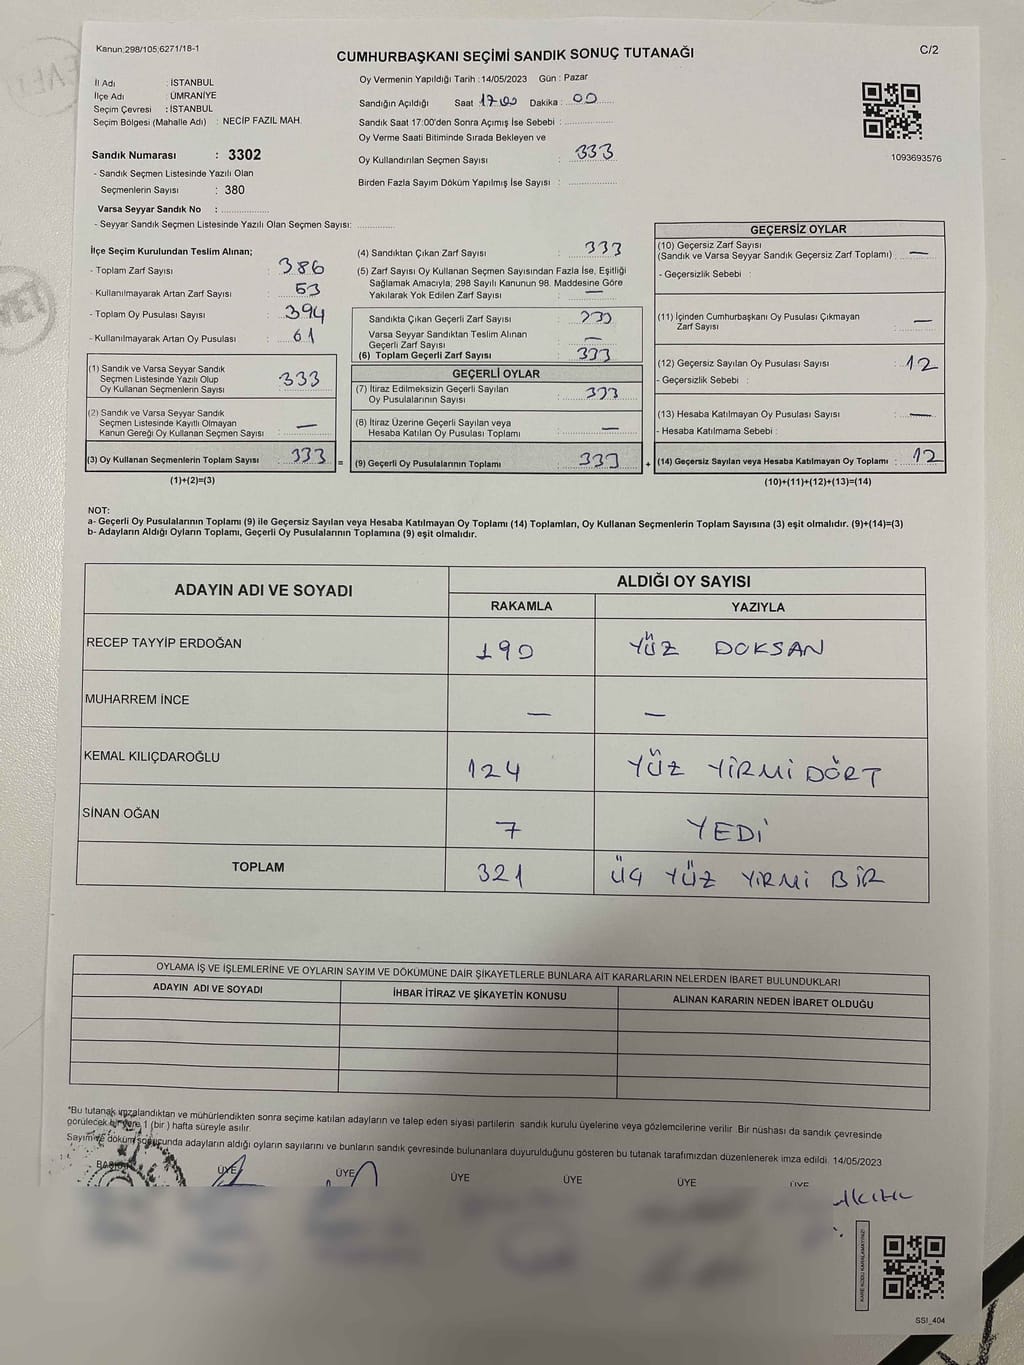 Kanun:298/105;6271/18-1
C/2
CUMHURBAŞKANI SEÇİMİ SANDIK SONUÇ TUTANAĞI
İl Adı : İSTANBUL
İlçe Adı : ÜMRANİYE
Seçim Çevresi : İSTANBUL
Seçim Bölgesi (Mahalle Adı) : NECİP FAZIL MAH.
Sandık Numarası : 3302
- Sandık Seçmen Listesinde Yazılı Olan
Seçmenlerin Sayısı : 380
Varsa Seyyar Sandık No :
- Seyyar Sandık Seçmen Listesinde Yazılı Olan Seçmen Sayısı:
Oy Vermenin Yapıldığı Tarih : 14/05/2023 Gün : Pazar
Sandığın Açıldığı Saat 17:00 Dakika : 00
Sandık Saat 17:00'den Sonra Açımış İse Sebebi :
Oy Verme Saati Bitiminde Sırada Bekleyen ve
Oy Kullandırılan Seçmen Sayısı : 333
Birden Fazla Sayım Döküm Yapılmış İse Sayısı :
1093693576
İlçe Seçim Kurulundan Teslim Alınan;
- Toplam Zarf Sayısı : 386
- Kullanılmayarak Artan Zarf Sayısı : 53
- Toplam Oy Pusulası Sayısı : 394
- Kullanılmayarak Artan Oy Pusulası : 61
(1) Sandık ve Varsa Seyyar Sandık
Seçmen Listesinde Yazılı Olup
Oy Kullanan Seçmenlerin Sayısı : 333
(2) Sandık ve Varsa Seyyar Sandık
Seçmen Listesinde Kayıtlı Olmayan
Kanun Gereği Oy Kullanan Seçmen Sayısı : —
(3) Oy Kullanan Seçmenlerin Toplam Sayısı : 333
(1)+(2)=(3)
=
(4) Sandıktan Çıkan Zarf Sayısı : 333
(5) Zarf Sayısı Oy Kullanan Seçmen Sayısından Fazla İse, Eşitliği
Sağlamak Amacıyla; 298 Sayılı Kanunun 98. Maddesine Göre
Yakılarak Yok Edilen Zarf Sayısı : —
Sandıkta Çıkan Geçerli Zarf Sayısı : 333
Varsa Seyyar Sandıktan Teslim Alınan
Geçerli Zarf Sayısı : —
(6) Toplam Geçerli Zarf Sayısı : 333
GEÇERLİ OYLAR
(7) İtiraz Edilmeksizin Geçerli Sayılan
Oy Pusulalarının Sayısı : 333
(8) İtiraz Üzerine Geçerli Sayılan veya
Hesaba Katılan Oy Pusulası Toplamı : —
(9) Geçerli Oy Pusulalarının Toplamı : 333
+
GEÇERSİZ OYLAR
(10) Geçersiz Zarf Sayısı
(Sandık ve Varsa Seyyar Sandık Geçersiz Zarf Toplamı) : —
- Geçersizlik Sebebi :
(11) İçinden Cumhurbaşkanı Oy Pusulası Çıkmayan
Zarf Sayısı : —
(12) Geçersiz Sayılan Oy Pusulası Sayısı : 12
- Geçersizlik Sebebi :
(13) Hesaba Katılmayan Oy Pusulası Sayısı : —
- Hesaba Katılmama Sebebi :
(14) Geçersiz Sayılan veya Hesaba Katılmayan Oy Toplamı : 12
(10)+(11)+(12)+(13)=(14)
NOT:
a- Geçerli Oy Pusulalarının Toplamı (9) ile Geçersiz Sayılan veya Hesaba Katılmayan Oy Toplamı (14) Toplamları, Oy Kullanan Seçmenlerin Toplam Sayısına (3) eşit olmalıdır. (9)+(14)=(3)
b- Adayların Aldığı Oyların Toplamı, Geçerli Oy Pusulalarının Toplamına (9) eşit olmalıdır.
ADAYIN ADI VE SOYADI
ALDIĞI OY SAYISI
RAKAMLA YAZIYLA
RECEP TAYYİP ERDOĞAN 190 YÜZ DOKSAN
MUHARREM İNCE — —
KEMAL KILIÇDAROĞLU 124 YÜZ YİRMİ DÖRT
SİNAN OĞAN 7 YEDİ
TOPLAM 321 ÜÇ YÜZ YİRMİ BİR
OYLAMA İŞ VE İŞLEMLERİNE VE OYLARIN SAYIM VE DÖKÜMÜNE DAİR ŞİKAYETLERLE BUNLARA AİT KARARLARIN NELERDEN İBARET BULUNDUKLARI
ADAYIN ADI VE SOYADI İHBAR İTİRAZ VE ŞİKAYETİN KONUSU ALINAN KARARIN NEDEN İBARET OLDUĞU
*Bu tutanak imzalandıktan ve mühürlendikten sonra seçime katılan adayların ve talep eden siyasi partilerin sandık kurulu üyelerine veya gözlemcilerine verilir. Bir nüshası da sandık çevresinde
görülecek bir yere 1 (bir ) hafta süreyle asılır.
Sayım ve döküm sonucunda adayların aldığı oyların sayılarını ve bunların sandık çevresinde bulunanlara duyurulduğunu gösteren bu tutanak tarafımızdan düzenlenerek imza edildi. 14/05/2023
BAŞKAN ÜYE ÜYE ÜYE ÜYE ÜYE ÜYE
SSI_404